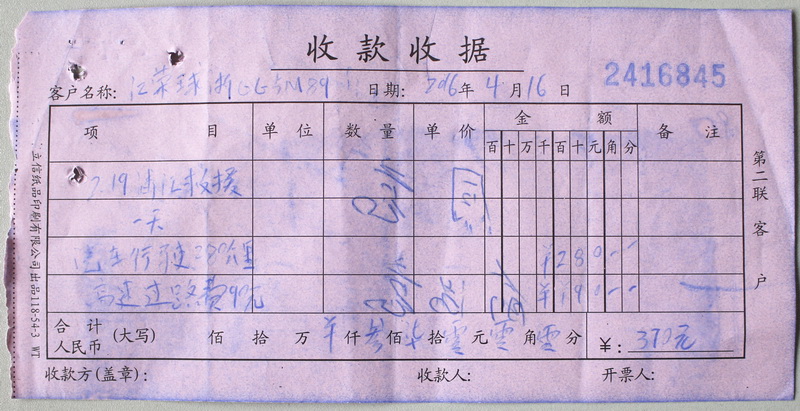 收款收据
2416845
客户名称: 江荣球 浙GG5M89 日期: 2016年4月16日
项目 单位 数量 单价 金额 备注
百十万千百十元角分
7.19 救援
一天
汽车行驶28公里 ¥280--
高速过路费90元 ¥190--
合计人民币 (大写) 佰 拾 万 羊仟叁佰柒拾零元零角零分 ¥: 370元
收款方(盖章): 收款人: 开票人:
第二联 客户
立信纸品印刷有限公司出品118-54-3 WT